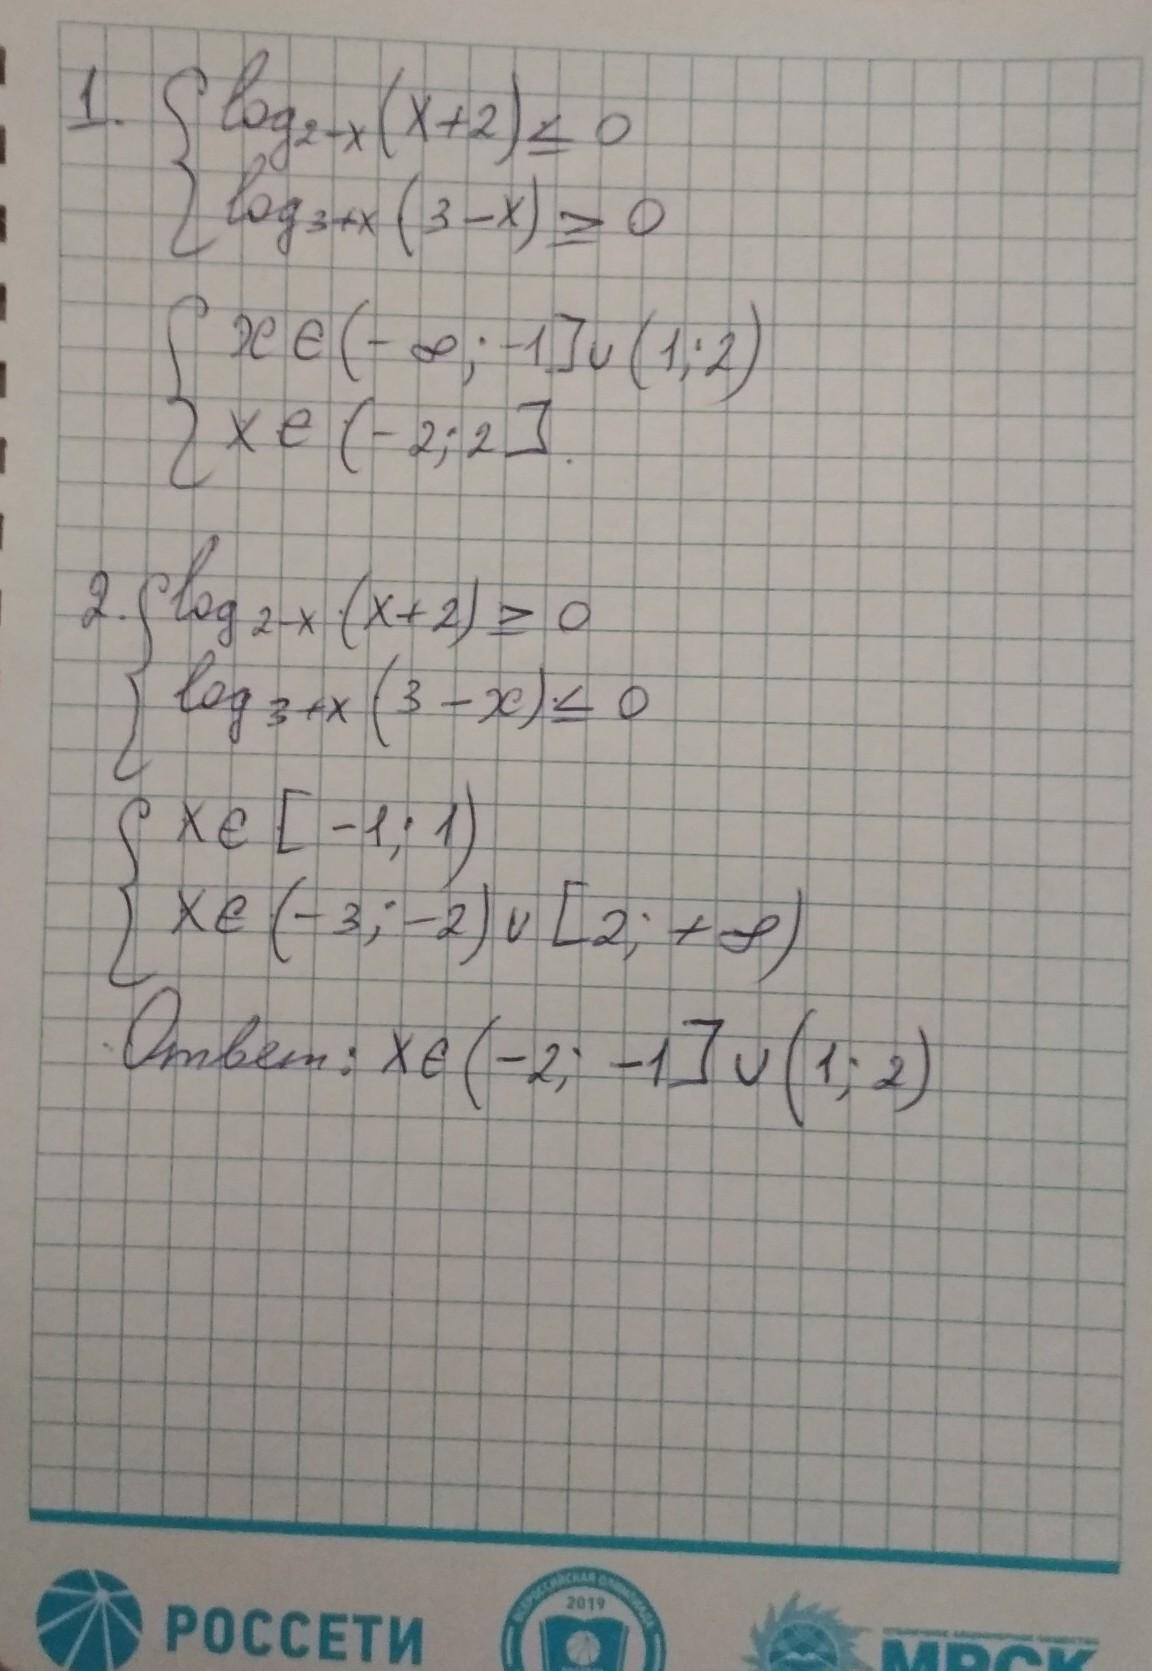 1. { log₂₋ₓ(x+2) ≤ 0
log₃₊ₓ(3-x) ≥ 0
{ x ∈ (-∞; -1] ∪ (1; 2)
x ∈ (-2; 2].
2. { log₂₋ₓ(x+2) ≥ 0
log₃₊ₓ(3-x) ≤ 0
{ x ∈ [-1; 1)
x ∈ (-3; -2) ∪ [2; +∞)
Ответ: x ∈ (-2; -1] ∪ (1; 2)
ВСЕРОССИЙСКАЯ ОЛИМПИАДА
2019
РОССЕТИ
МРСК